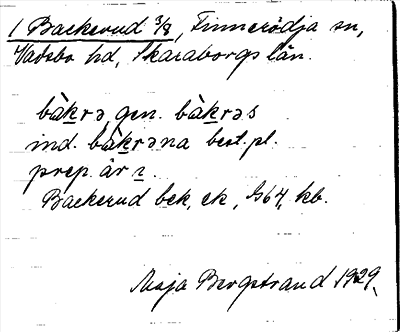 1 Backerud 3/8, Finnerödja sn,
Vadsbo hd, Skaraborgs län.
bàkrə gen. bàkrəs
ind. bàkrəna best. pl.
prep. är ı.
Backerud bek, ek, G64, kb.
Maja Bergstrand 1929